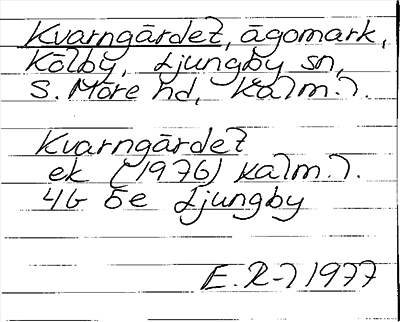 Kvarngärdet, ägomark,
Kölby, Ljungby sn,
S. Möre hd, Kalm. l.
Kvarngärdet
ek (1976) Kalm. l.
4G 5e Ljungby
E. R-l 1977